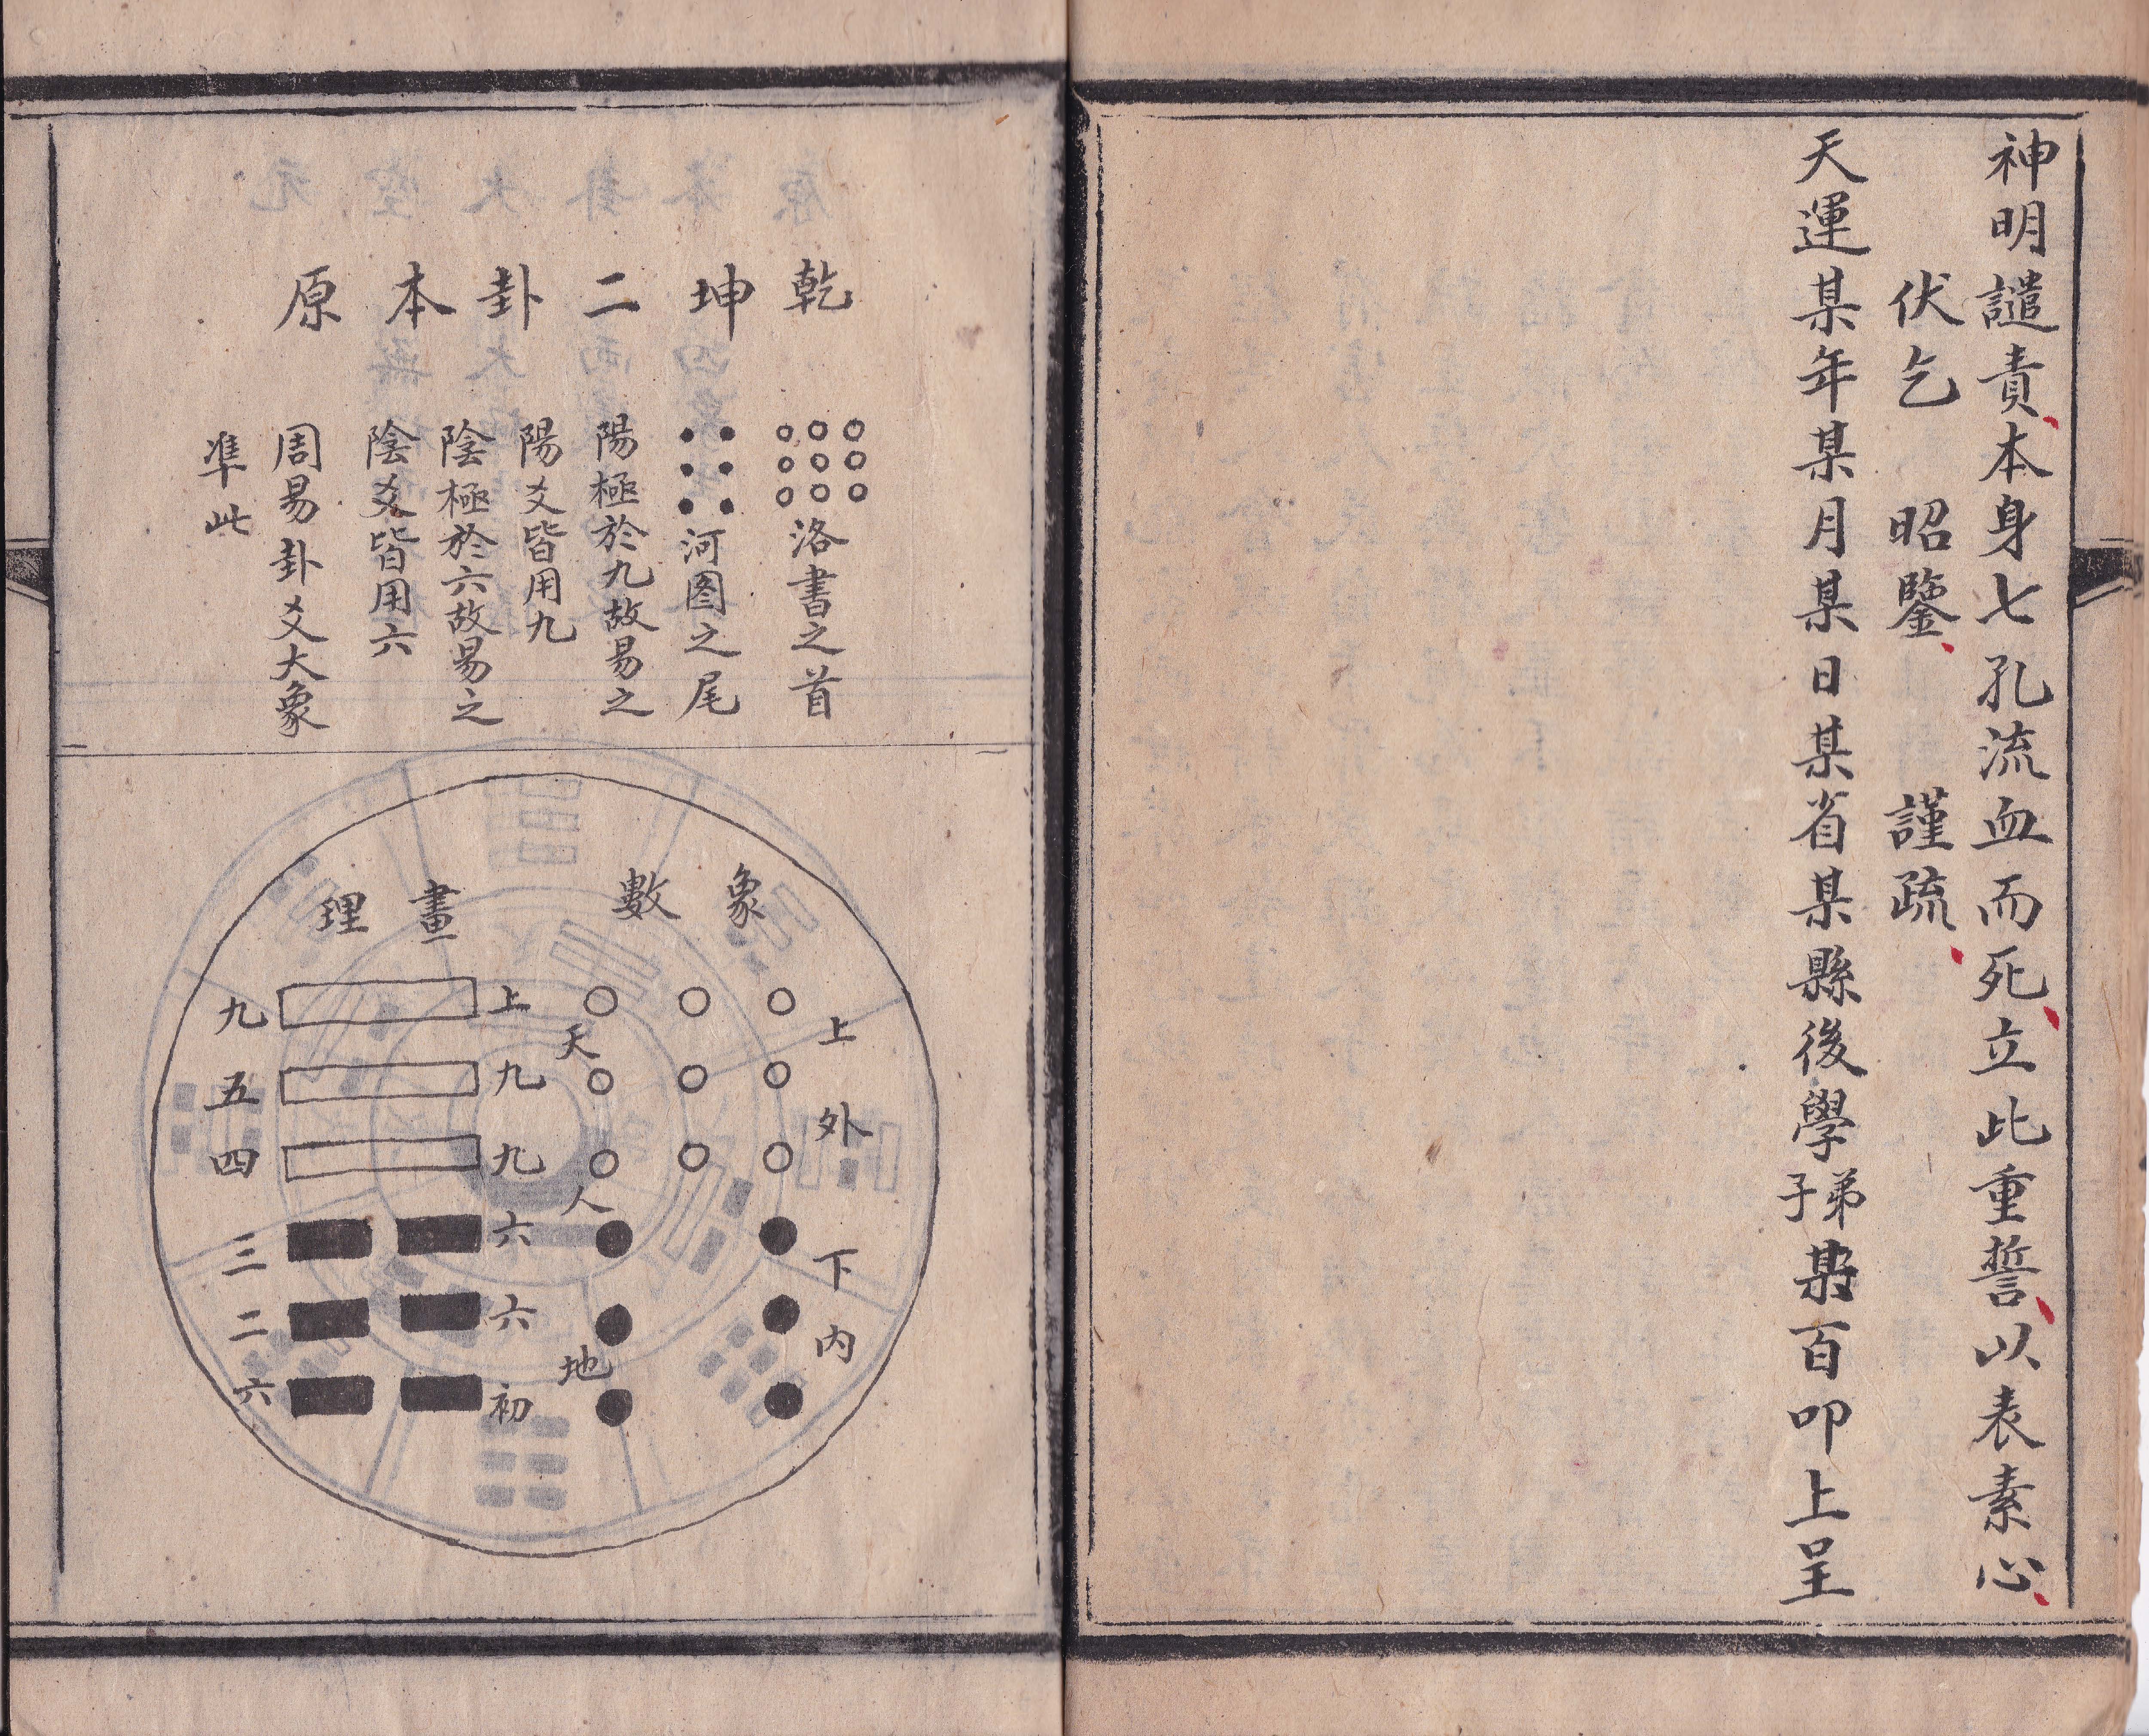 神明譴責本身七孔流血而死立此重誓以表素心
伏乞 昭鑒 謹疏
天運某年某月某日某省某縣後學弟子某百叩上呈
乾坤二卦本原
洛書之首
河圖之尾
陽極於九故易之
陽爻皆用九
陰極於六故易之
陰爻皆用六
周易卦爻大象
準此
象數
畫理
上外
下内
天
人
地
上九
九五
九四
六三
六二
初六